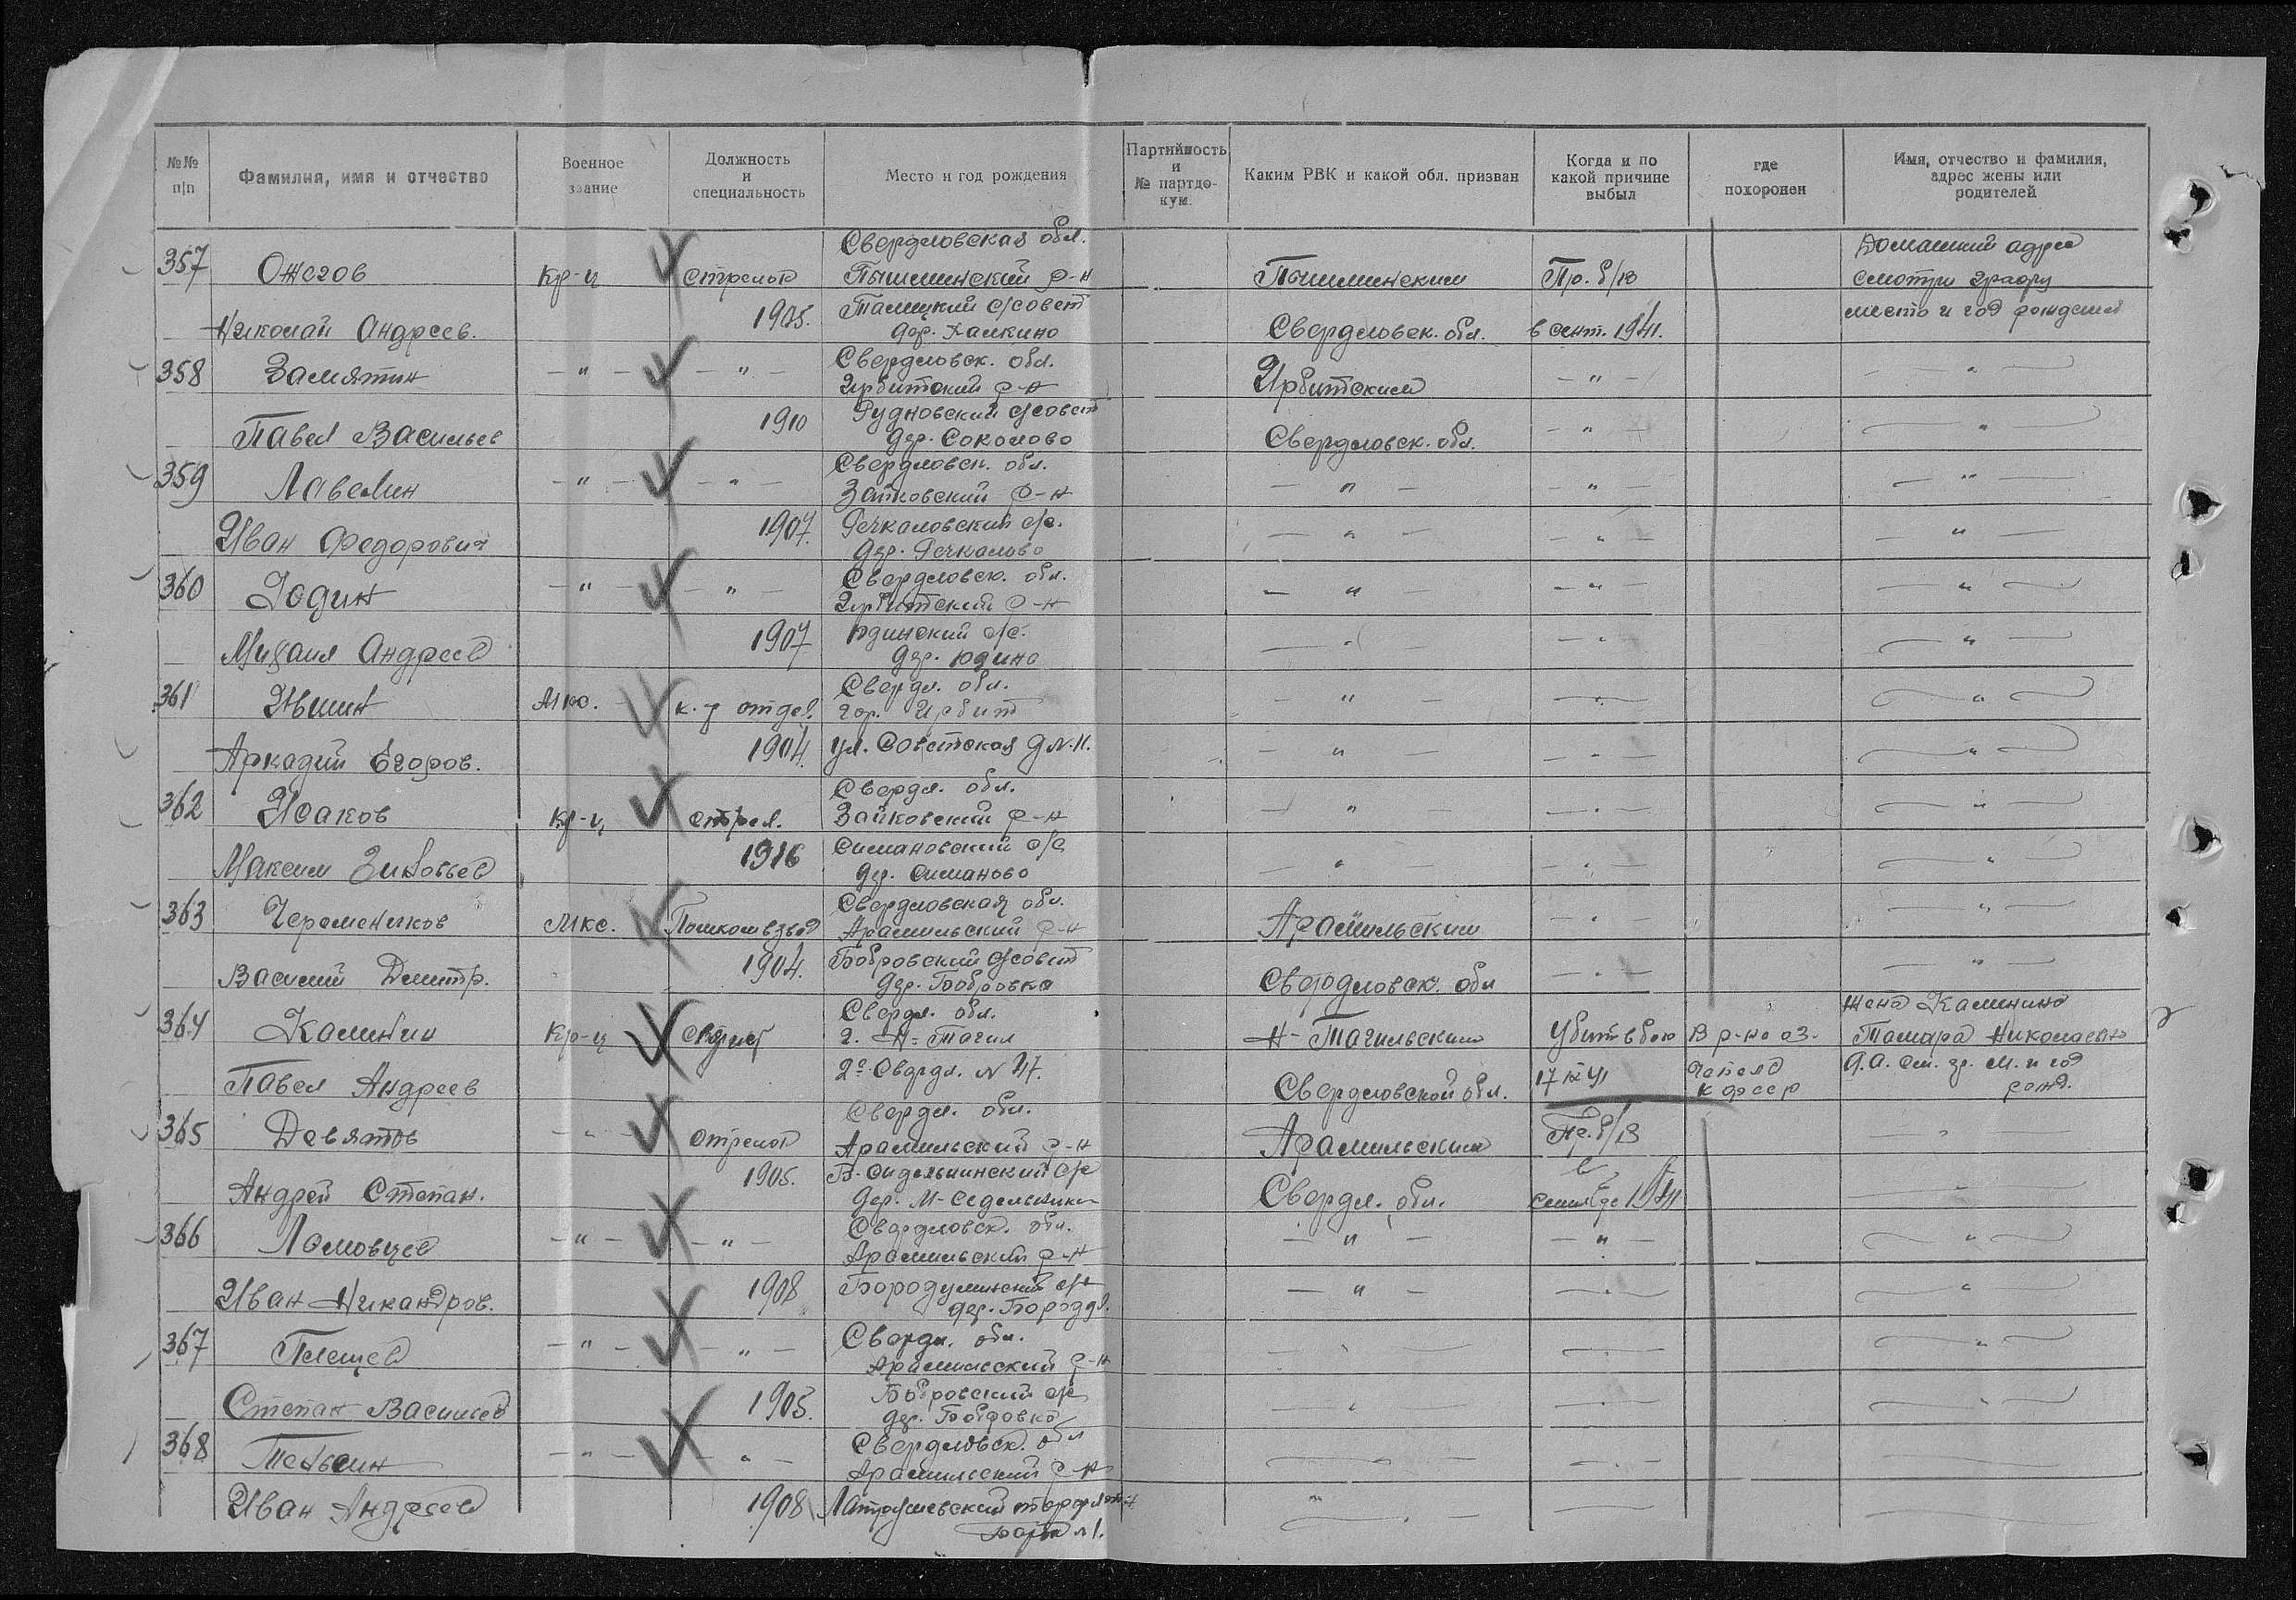 №№ п/п
Фамилия, имя и отчество
Военное звание
Должность и специальность
Место и год рождения
Партийность и № партдокум.
Каким РВК и какой обл. призван
Когда и по какой причине выбыл
где похоронен
Имя, отчество и фамилия, адрес жены или родителей
Свердловская обл. Домашний адрес
357 Ожегов Кр-ц стрелок Пышминский р-н Пышминским Пр. б/в смотри графу
1905. с/совет место и год рождения
Николай Андреев. дер. Свердловск. обл. в сент. 1941.
358 Замятин — " — — " — Свердловск. обл. Ирбитским — " — — " —
Ирбитский р-н
1910 Рудновский с/совет
Павел Васильев дер. Соколово Свердловск. обл. — " — — " —
359 — " — — " — Свердловск. обл. — " — — " — — " —
Зайковский р-н
1907. Речкаловский с/с.
Иван Федорович дер. Речкалово — " — — " — — " —
360 Юдин — " — — " — Свердловск. обл. — " — — " — — " —
Ирбитский р-н
1907 Юдинский с/с.
Михаил Андреев дер. Юдино — " — — " — — " —
361 Мкс. к-р отдел. Свердл. обл. — " — — " — — " —
гор. Ирбит
1904. ул. Советская д N. 11.
Аркадий Егоров. — " — — " — — " —
362 Исаков Кр-ц стрел. Свердл. обл. — " — — " — — " —
Зайковский р-н
1916 Симановский с/с
Максим Зиновьев дер. Симаново — " — — " — — " —
363 Черемеников Мкс. Помкомвзвод Свердловская обл. Арамильским — " — — " —
Арамильский р-н
1904. Бобровский с/совет
Василий Дмитр. дер. Бобровка Свердловск. обл — " — — " —
364 Калинин Кр-ц Свердл. обл. Н-Тагильским Убит в бою В р-не оз. жена Калинина
г. Н-Тагил Тамара Николаевна
Свердл. N 47. 17 IX 41 К ФССР Д.А. см. гр. м. и год
Павел Андреев Свердловской обл. рожд.
365 Девятов — " — стрелок Свердл. обл. Арамильским Пр. б/в — " —
Арамильский р-н
1905. с/с в
Андрей Степан. дер. М-Седельники Свердл. обл. сентябре 1941 — " —
366 Ломовцев — " — — " — Свердловск. обл. — " — — " — — " —
Арамильский р-н
1908 Бородулинский с/с
Иван Никандров. дер. — " — — " — — " —
367 Плещев — " — — " — Свердл. обл. — " — — " — — " —
Арамильский р-н
1905. Бобровский с/с
Степан Васильев дер. Бобровка — " — — " — — " —
368 Теньсин — " — — " — Свердловск. обл — " — — " — — " —
Арамильский р-н
Иван Андреев 1908 — " — — " — — " —
N 1.